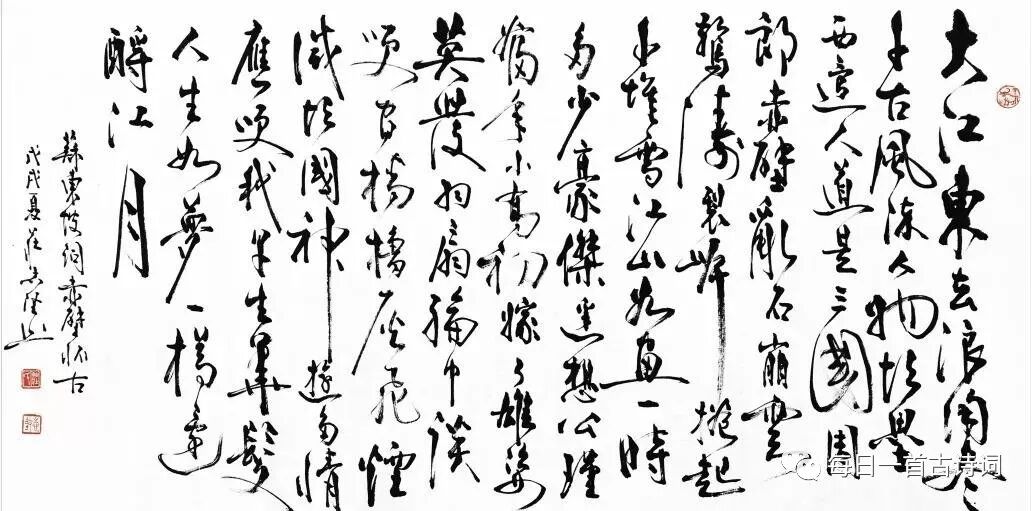 大江東去浪淘尽
千古風流人物故壘
西邊人道是三國周
郎赤壁亂石崩雲
驚濤裂岸捲起
千堆雪江山如畫一時
多少豪傑遙想公瑾
當年小喬初嫁了雄姿
英發羽扇綸巾談
笑間檣櫓灰飛煙
滅故國神遊多情
應笑我早生華髮
人生如夢一樽還
酹江月
蘇東坡詞赤壁怀古
戊戌夏
每日一首古诗词